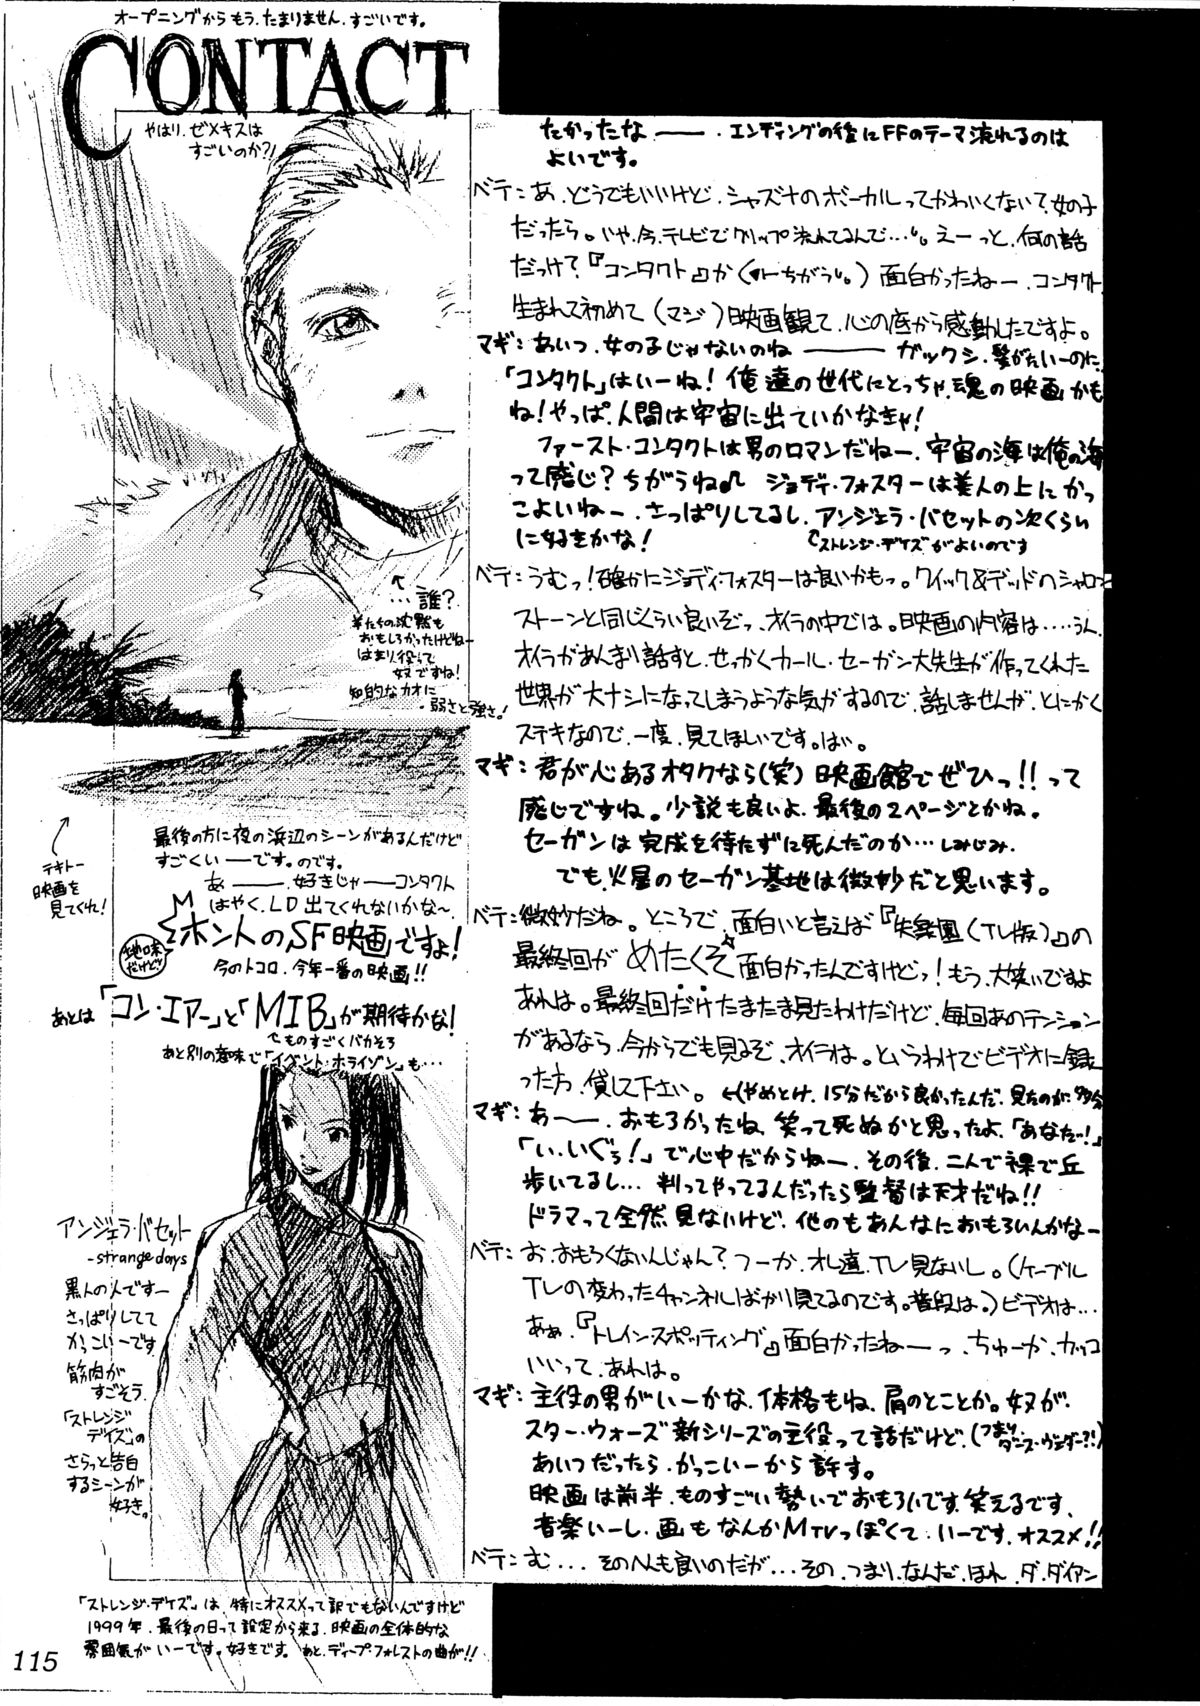 オープニングからもう、たまりません、すごいです。
CONTACT
やはり、ゼメキスは
すごいのか?!
←
…誰?
羊たちの沈黙も
おもしろかったけどねー
はまり役って
奴ですね!
知的なカオに
弱さと強さ!
テキトー
映画を
見てくれ!
最後の方に夜の浜辺のシーンがあるんだけど
すごくいーです。のです。
あー、好きじゃーコンタクト
はやくLD出てくれないかな〜
ホントのSF映画ですよ!
地味だけど!
今のトコロ、今年一番の映画!!
あとは「コン・エアー」と「MIB」が期待かな!
ものすごくバカそう
あと別の意味で「イベント・ホライゾン」も…
アンジェラ・バセット
-strange days
黒人の人ですー
さっぱりしてて
かっこいーです
筋肉が
すごそう
「ストレンジ
デイズ」の
さらっと告白
するシーンが
好き。
「ストレンジ・デイズ」は、特にオススメって訳でもないんですけど
1999年、最後の日って設定から来る、映画の全体的な
雰囲気がいーです。好きです。あと、ディープ・フォレストの曲が!!
115
たかったなー。エンディングの後にFFのテーマ流れるのは
よいです。
ベテ:あ、どうでもいいけど、シャズナのボーカルってかわいくない?女の子
だったら。いや、今、テレビでクリップ流れてるんで…。えーっと、何の話
だっけ?『コンタクト』か(←ちがう。)面白かったねー、コンタクト
生まれて初めて(マジ)映画観て、心の底から感動したですよ。
マギ:あいつ、女の子じゃないのねー ガックシ、
「コンタクト」はいーね!俺達の世代にとっちゃ魂の映画かも
ね!やっぱ人間は宇宙に出ていかなきゃ!
ファースト・コンタクトは男のロマンだねー、宇宙の海は俺の海
って感じ?ちがうね♪ ジョディ・フォスターは美人の上にかっ
こよいねー、さっぱりしてるし、アンジェラ・バセットの次くらい
に好きかな!
「ストレンジ・デイズ」がよいのです
ベテ:うむっ!確かにジョディ・フォスターは良いかもっ。クイック&デッドのシャロン
ストーンと同じくらい良いぞっ、オイラの中では。映画の内容は……うん、
オイラがあんまり話すと、せっかくカール・セーガン大先生が作ってくれた
世界が大ナシになってしまうような気がするので、話しませんが、とにかく
ステキなので、一度、見てほしいです。
マギ:君が心あるオタクなら(笑)映画館でぜひっ!!って
感じですね。小説も良いよ、最後の2ページとかね。
セーガンは完成を待たずに死んだのか…しみじみ、
でも、火星のセーガン基地は微妙だと思います。
ベテ:微妙だね。ところで、面白いと言えば『失楽園(TV版)』の
最終回がめたくそ面白かったんですけどっ!もう、大笑いですよ
あれは。最終回だけたまたま見たわけだけど、毎回あのテンション
があるなら、今からでも見るぞ、オイラは。というわけでビデオに録
った方、貸して下さい。←(やめとけ、15分だから良かったんだ、見たのが、多分
マギ:あー、おもろかったね、笑って死ぬかと思ったよ、「あなたっ!」
「い、いくぅ!」で心中だからねー、その後、二人で裸で丘
歩いてるし… 判ってやってるんだったら監督は天才だね!!
ドラマって全然見ないけど、他のもあんなにおもろいんかなー
ベテ:お、おもろくないんじゃん?つーか、オレ達、TV見ないし。(ケーブル
TVの変わったチャンネルばかり見てるのです。普段は。)ビデオは…
あぁ、『トレインスポッティング』面白かったねーっ、ちゅーか、カッコ
いいって、あれは。
マギ:主役の男がいーかな、体格もね、肩のとことか。奴が
スター・ウォーズ新シリーズの主役って話だけど、(つまりダース・ヴェイダー?!)
あいつだったら、かっこいーから許す。
映画は前半、ものすごい勢いでおもろいです、笑えるです、
音楽いーし、画もなんかMTVっぽくて、いーです、オススメ!!
ベテ:む… そのへんも良いのだが…その、つまり、なんだ、ほれ、ダ、ダイアン